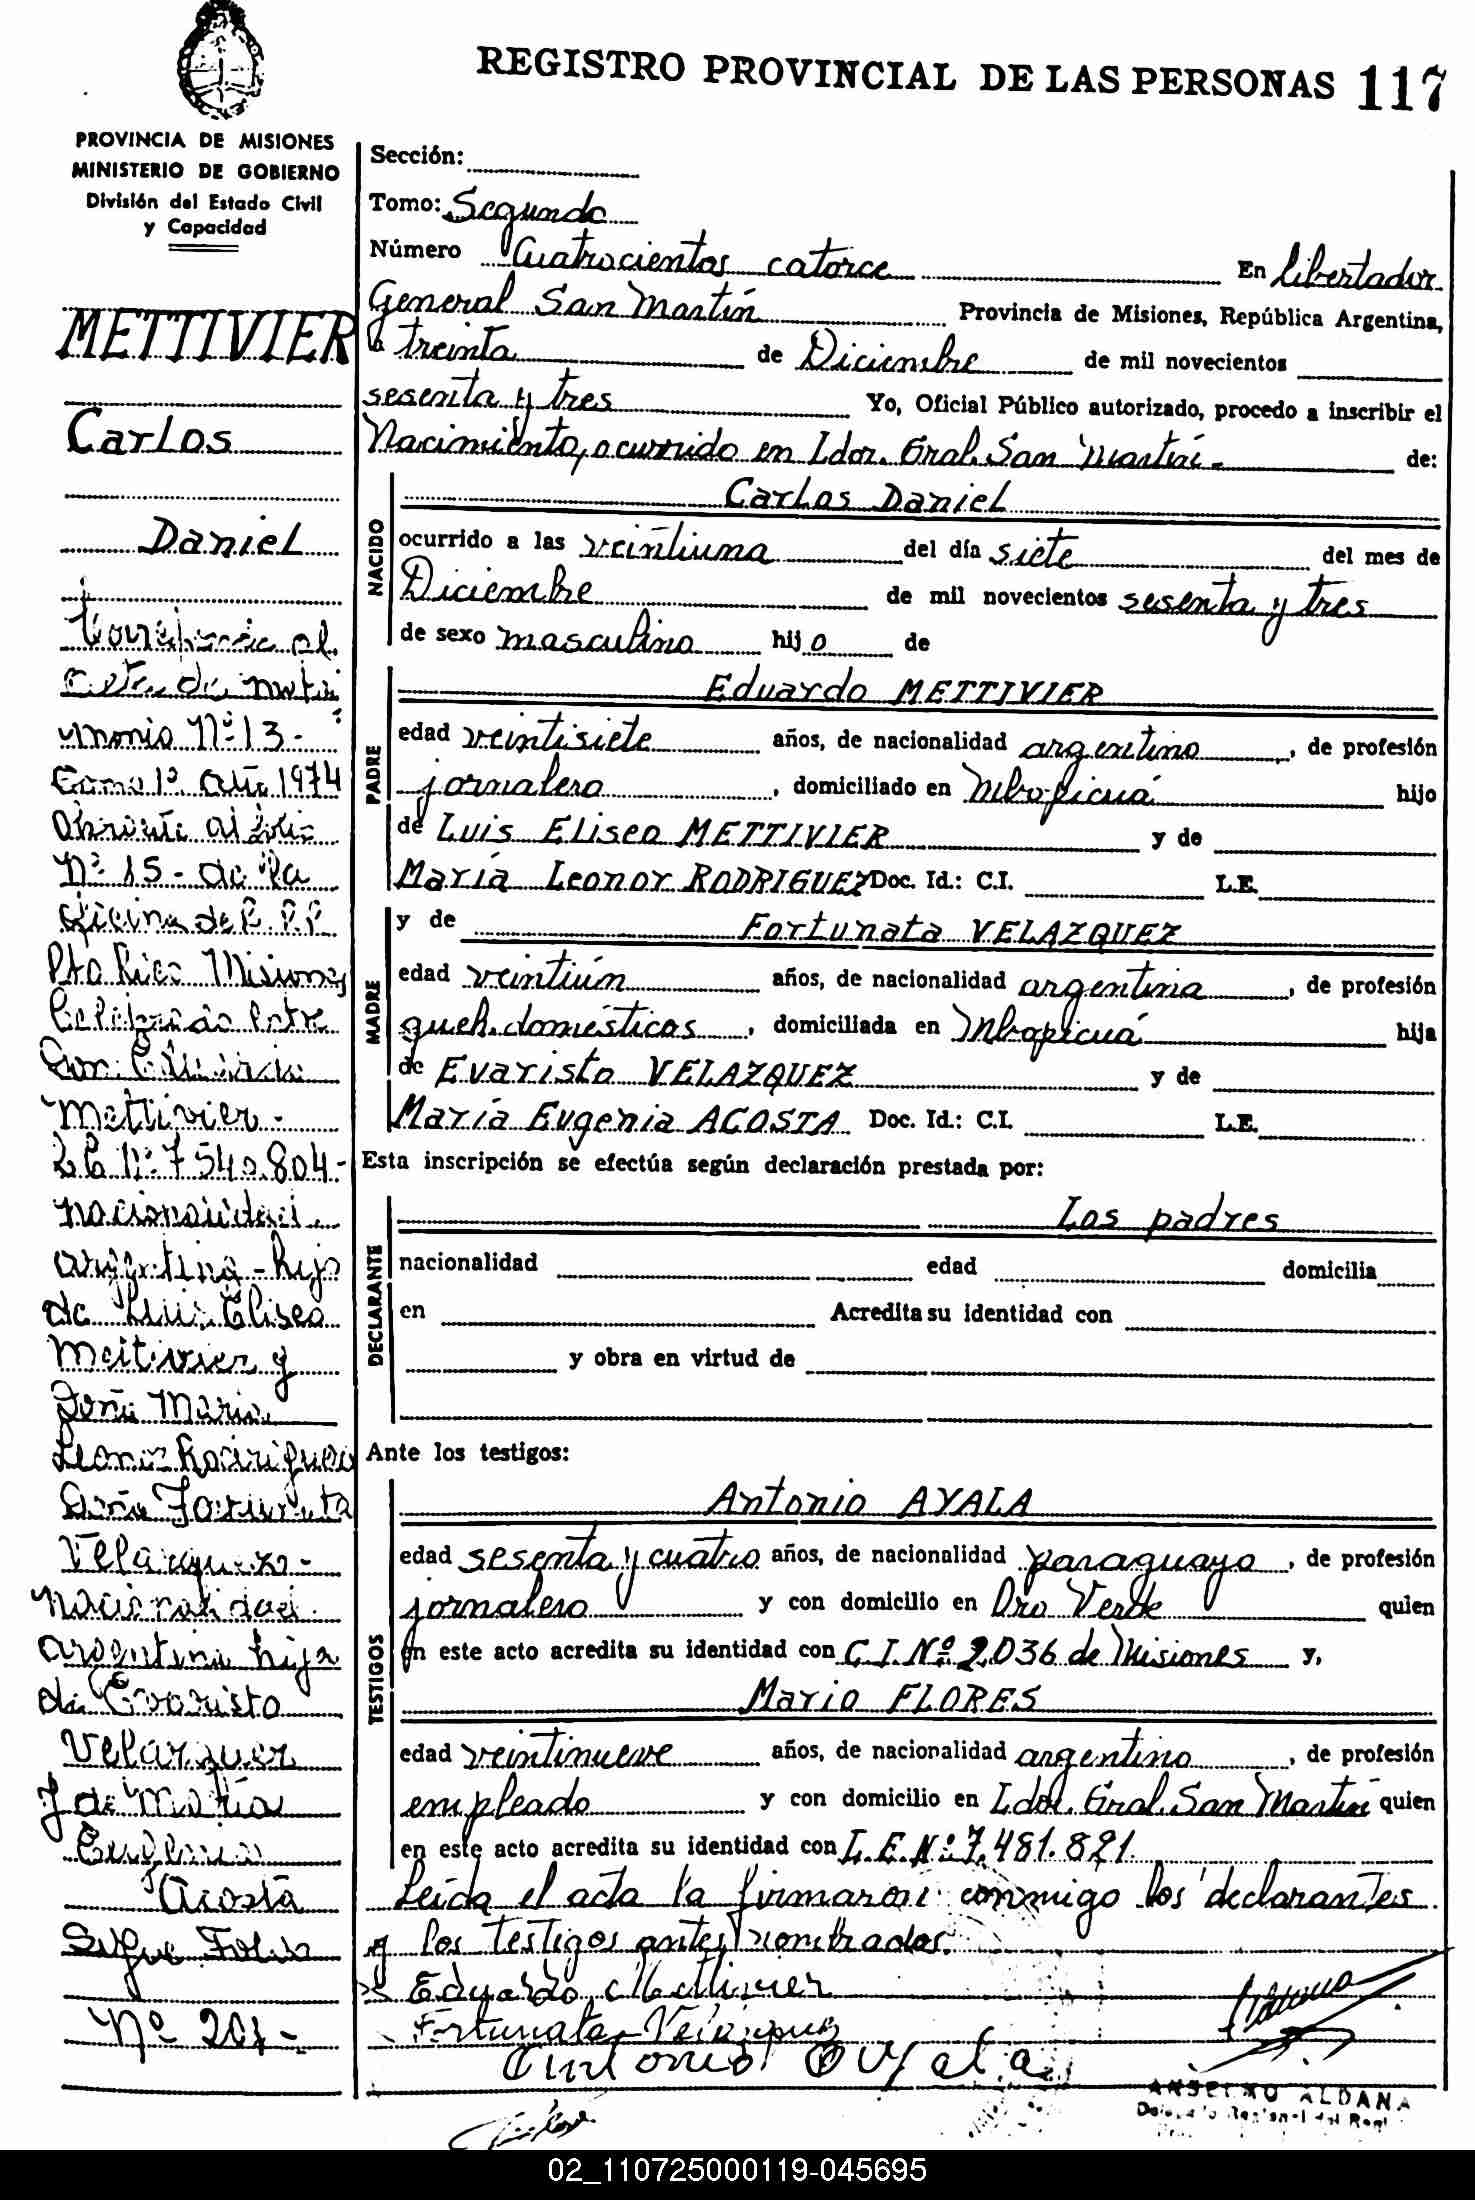 REGISTRO PROVINCIAL DE LAS PERSONAS 117
PROVINCIA DE MISIONES
MINISTERIO DE GOBIERNO
División del Estado Civil
y Capacidad
METTIVIER
Carlos
Daniel
al
monio Nº 13-
Tomo 1º año 1974
Nº 15 - de la
Oficina de R.P.P.
Pto Rico Misiones
entre
Don Eduardo
Mettivier -
Nº 7540.804-
nacionalidad
argentina - hijo
de Luis Eliseo
Mettivier y
Doña Maria
Leonor Rodriguez
Doña Fortunata
Velazquez -
nacionalidad
argentina hija
de Evaristo
Velazquez
y de Maria
Eugenia
Acosta
Sigue Folio
Nº 201-
Sección:
Tomo: Segundo
Número Cuatrocientos catorce En Libertador
General San Martín Provincia de Misiones, República Argentina,
a treinta de Diciembre de mil novecientos
sesenta y tres Yo, Oficial Público autorizado, procedo a inscribir el
Nacimiento, ocurrido en Ldor. Gral. San Martín - de:
NACIDO
Carlos Daniel
ocurrido a las veintiuna del día siete del mes de
Diciembre de mil novecientos sesenta y tres
de sexo masculino hijo de
PADRE
Eduardo METTIVIER
edad veintisiete años, de nacionalidad argentino, de profesión
jornalero, domiciliado en Mbopicuá hijo
de Luis Eliseo METTIVIER y de
María Leonor RODRIGUEZ Doc. Id.: C.I. L.E.
MADRE
y de Fortunata VELAZQUEZ
edad veintiún años, de nacionalidad argentina, de profesión
queh. domésticos, domiciliada en Mbopicuá hija
de Evaristo VELAZQUEZ y de
María Eugenia ACOSTA Doc. Id.: C.I. L.E.
Esta inscripción se efectúa según declaración prestada por:
DECLARANTE
Los padres
nacionalidad edad domicilia
en Acredita su identidad con
y obra en virtud de
Ante los testigos:
TESTIGOS
Antonio AYALA
edad sesenta y cuatro años, de nacionalidad paraguayo, de profesión
jornalero y con domicilio en Oro Verde quien
en este acto acredita su identidad con C.I.Nº 2.036 de Misiones y,
Mario FLORES
edad veintinueve años, de nacionalidad argentino, de profesión
empleado y con domicilio en Ldor. Gral. San Martín quien
en este acto acredita su identidad con L.E.Nº 7.481.821.
Leída el acta la firmaron conmigo los declarantes
y los testigos antes nombrados.
Eduardo Mettivier
Fortunata Velazquez
Antonio Ayala
ANSELMO ALDANA
02_110725000119-045695